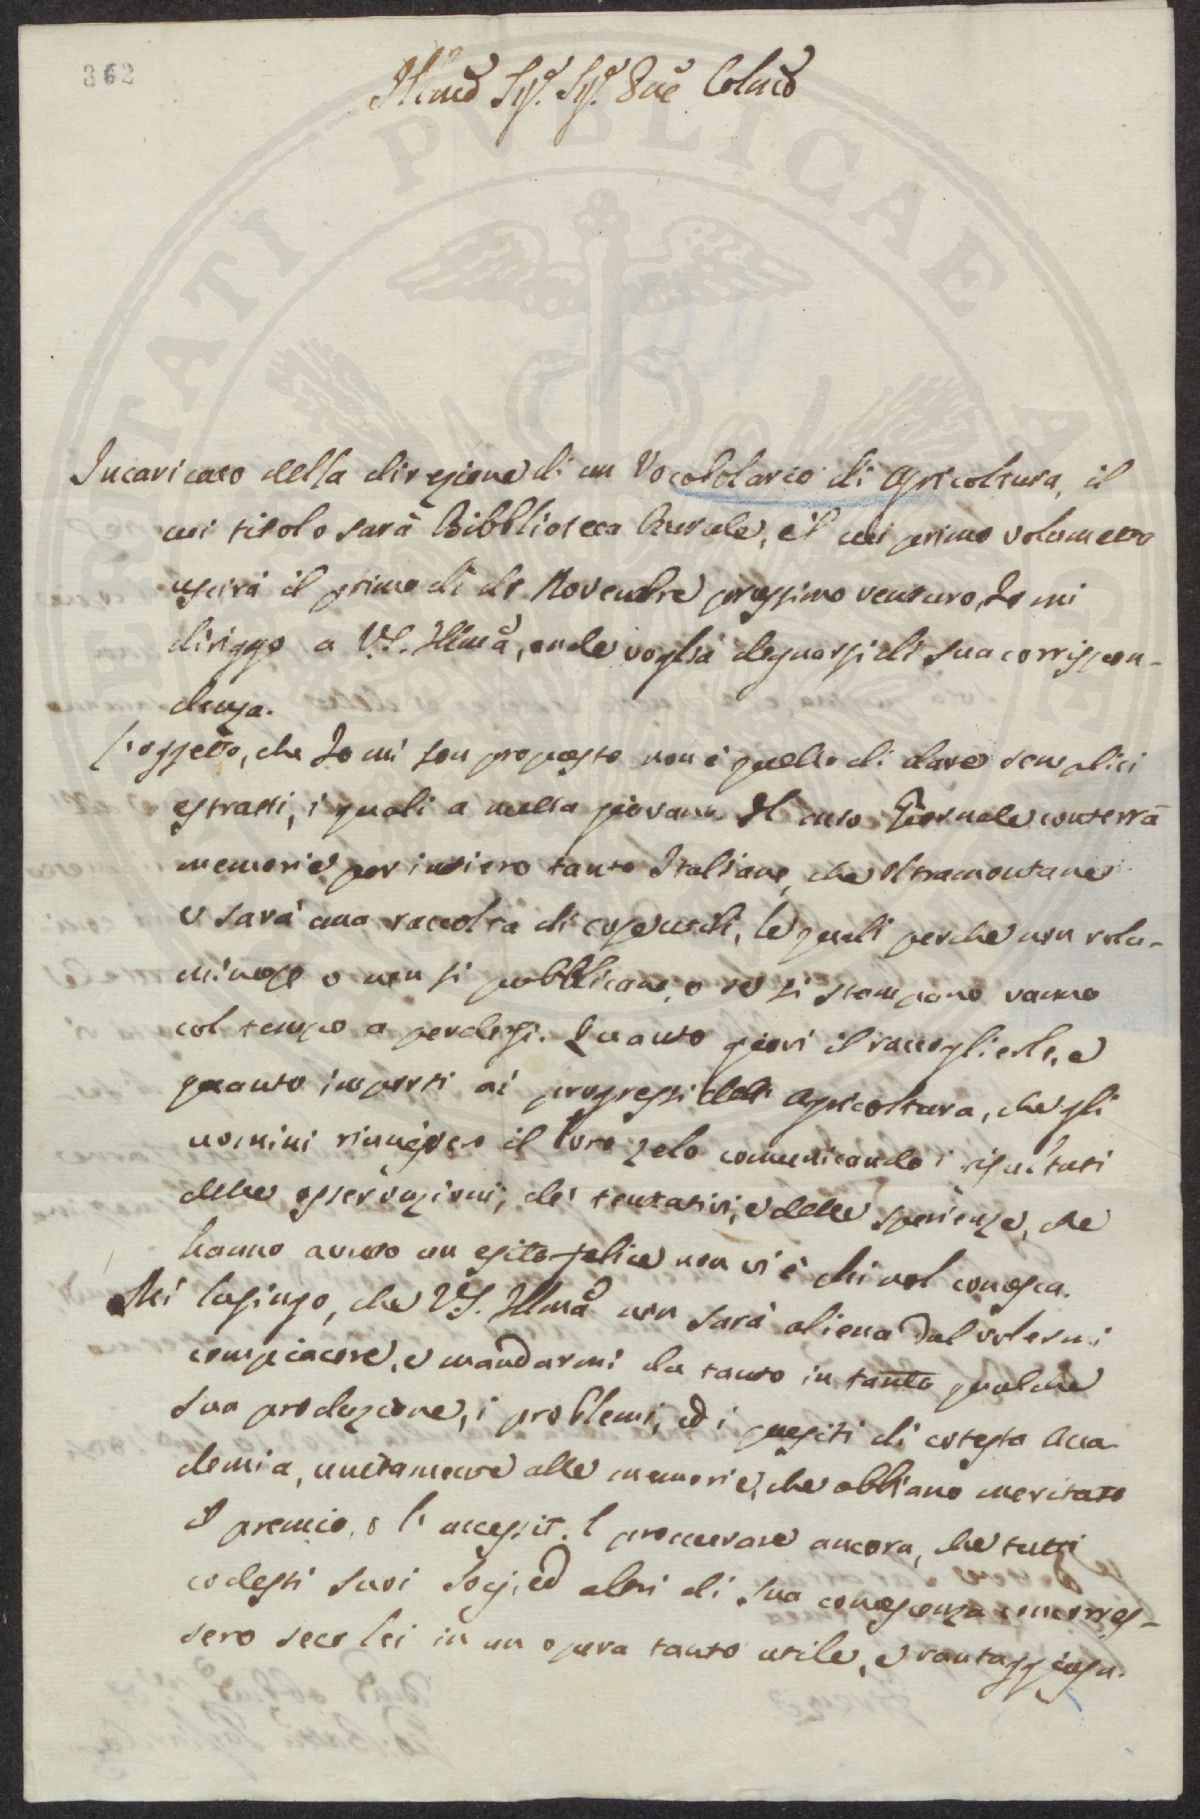 362
Illmo Sig. Sig. Pne Colmo
Incaricato della direzione di un Vocabolario di Agricoltura, il
cui titolo sarà Bibblioteca Rurale, e'l cui primo volumetto
uscirà il primo dì di Novembre prossimo venturo, Io mi
diriggo a V.S. Illma, onde voglia degnarsi di sua corrispon-
denza.
L'oggetto, che Io mi son proposto non è quello di dare semplici
estratti, i quali a nulla giovano. Il mio Giornale conterrà
memorie per intiero tanto Italiane, che Oltramontane
e sarà una raccolta di cose utili, le quali perche non volu-
minose o non si pubblicano, o se si stampano vanno
col tempo a perdersi. Quanto giovi il raccoglierle, e
quanto importi ai progressi dell' Agricoltura, che gli
uomini riunischino il loro zelo comunicando i risultati
delle osservazioni, de' tentativi, e delle sperienze, che
hanno avuto un esito felice non vi è chi nol conosca.
Mi lusingo, che V.S. Illma non sarà aliena dal volermi
compiacere, e mandarmi da tanto in tanto qualche
sua produzione, i problemi, ed i quesiti di cotesta Acca-
demia, unitamente alle memorie, che abbiano meritato
il premio, o l'accessit. E proccurare ancora, che tutti
codesti suoi Socj, ed altri di sua conoscenza concorres-
sero seco lei in un opera tanto utile, e vantaggiosa.
STATI PVBLICAE